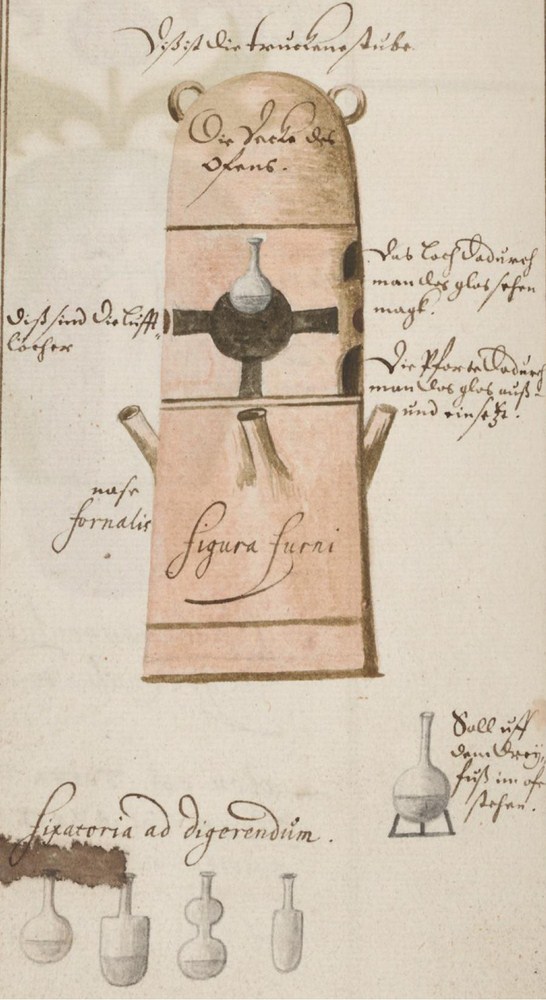 Diß ist die truckene stube.
Die Decke des
Ofens.
Das loch dadurch
man das glas sehen
magk.
diß sind die lufft
löcher
Die Pforte dadurch
man das glas auß-
und einsetzt.
nase
fornalis
figura furni
Soll uff
dem drey,
fuß im ofe
stehen.
fixatoria ad digerendum.